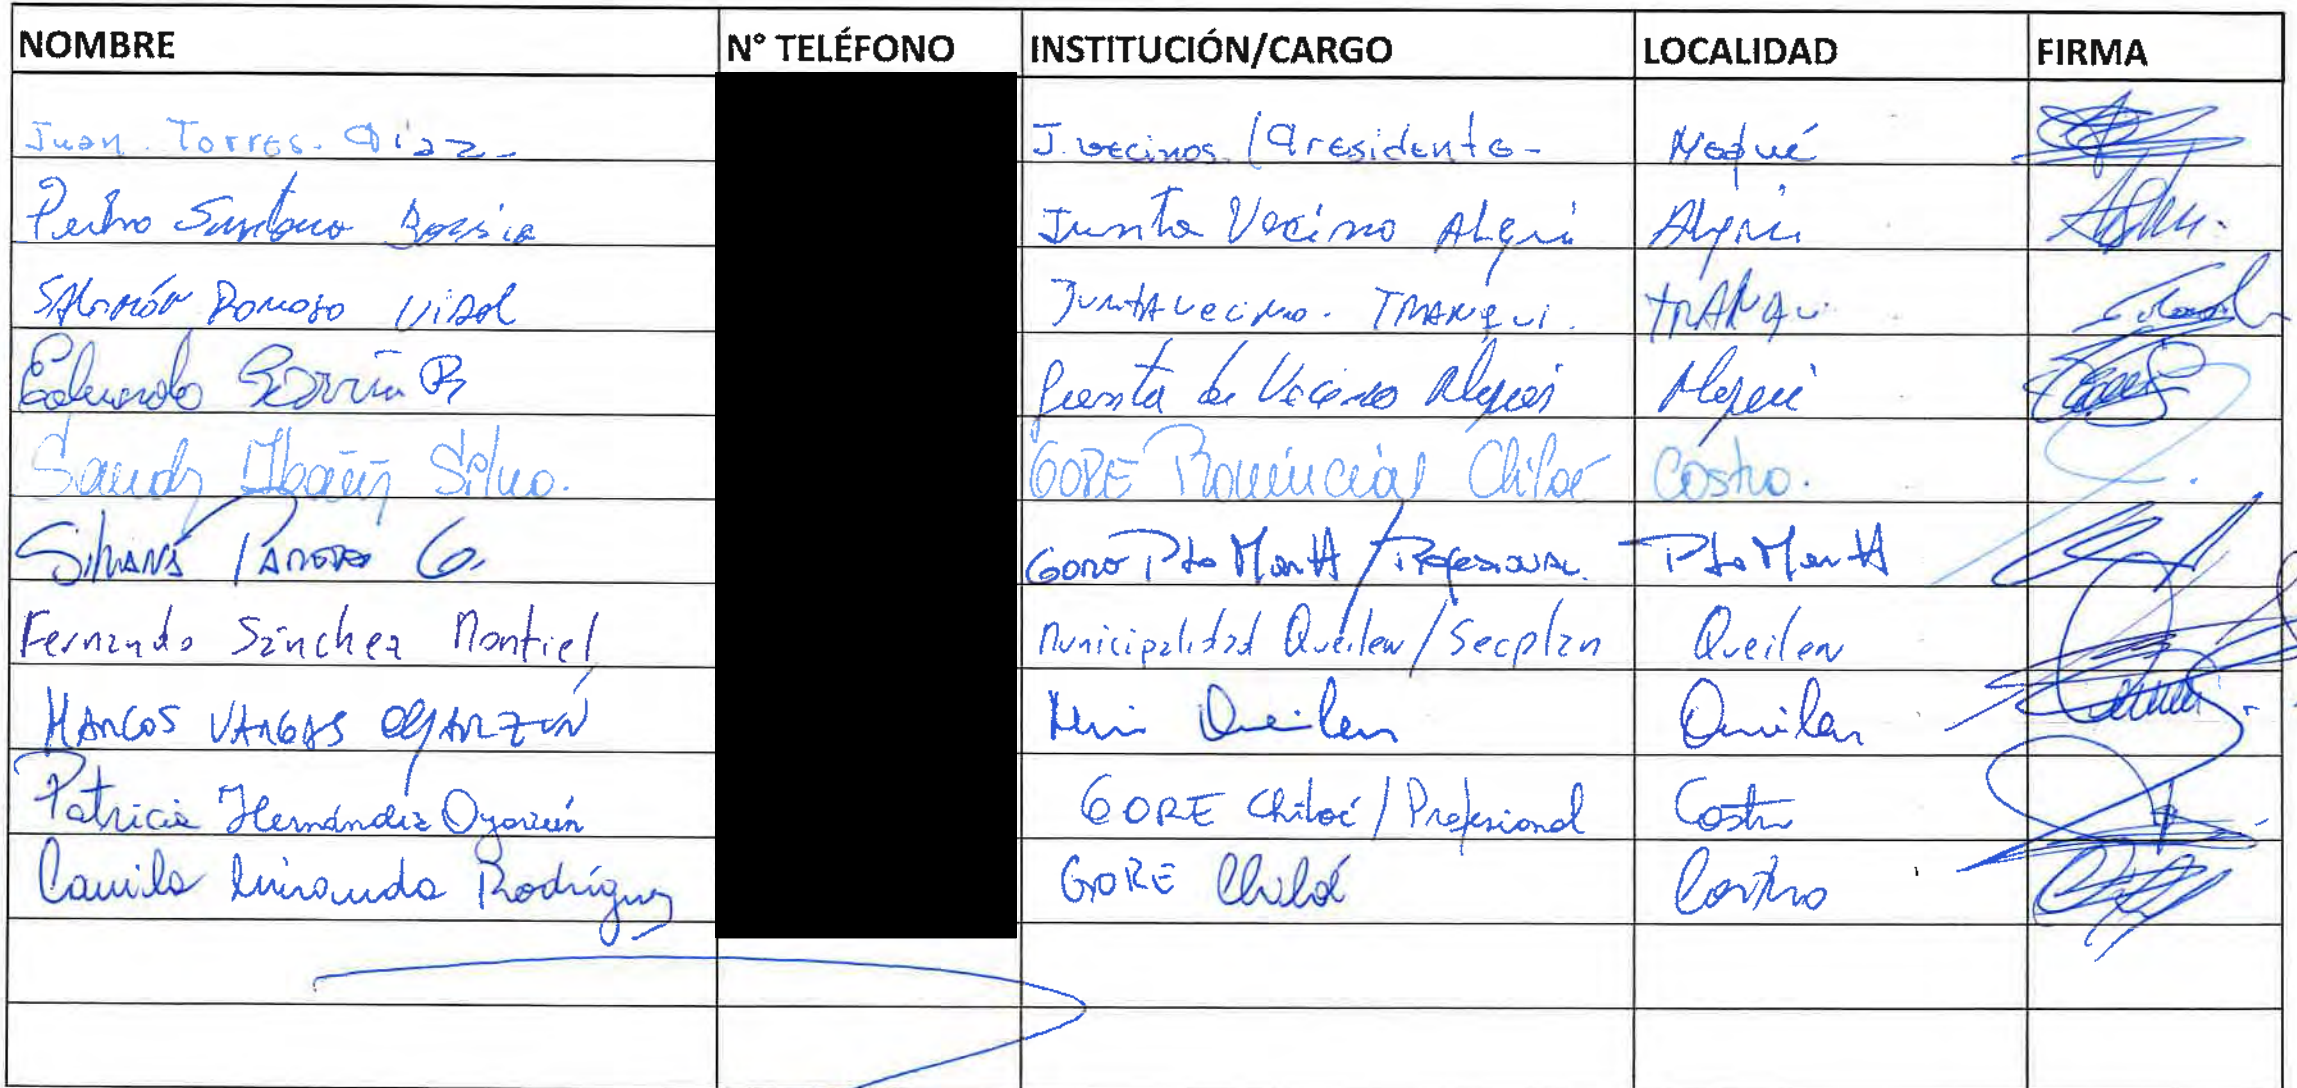 NOMBRE N° TELÉFONO INSTITUCIÓN/CARGO LOCALIDAD FIRMA
Juan. Torres. Díaz- J. vecinos. / Presidente-
Pedro Junta Vecino Alqui Alqui
Salomón Donoso Vidal Junta vecino. TRANQUI. TRANQUI
Eduardo Junta de Vecino
Sandy Ibáñez Silva. GORE Provincial Chiloé Castro.
Silvana Paredes G. Gore Pto Montt / Profesional. Pto Montt
Fernando Sánchez Montiel Municipalidad Queilen / Secplan Queilen
MARCOS VARGAS OYARZUN Muni Queilen Queilen
Patricia Hernández Oyarzún GORE Chiloé / Profesional Castro
Camila Miranda Rodríguez GORE Chiloé Castro